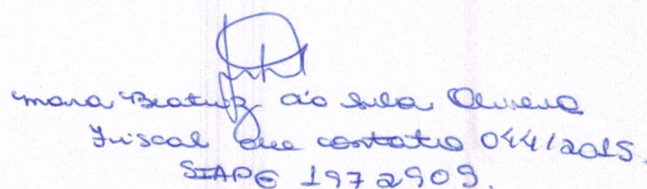 Mara Beatriz da Silva Oliveira
Fiscal do contrato 044/2015.
SIAPE 1972909.